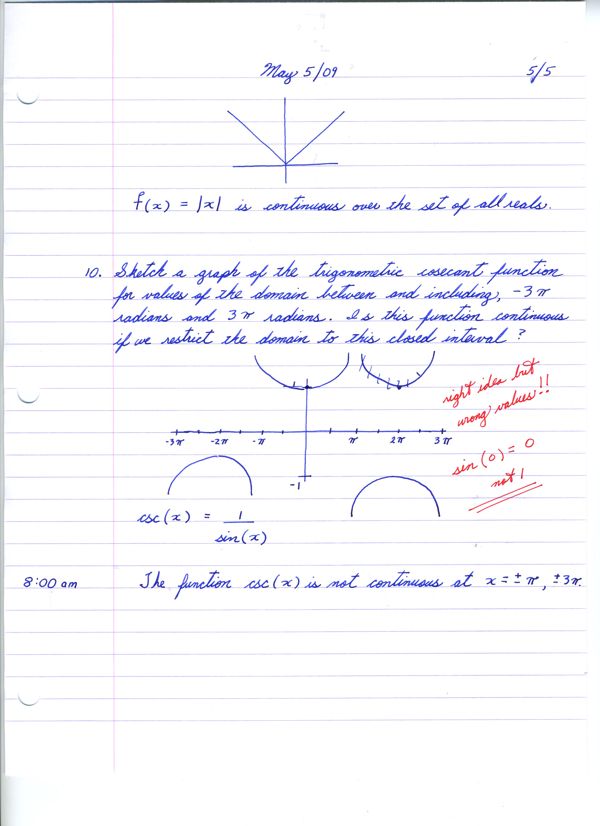 May 5/09 5/5
f(x) = |x| is continuous over the set of all reals.
10. Sketch a graph of the trigonometric cosecant function
for values of the domain between and including, -3π
radians and 3π radians. Is this function continuous
if we restrict the domain to this closed interval?
right idea but
wrong values!!
-3π -2π -π π 2π 3π
sin(0) = 0
not 1
-1
csc(x) = 1
sin(x)
8:00 am The function csc(x) is not continuous at x = ± π, ± 3π.